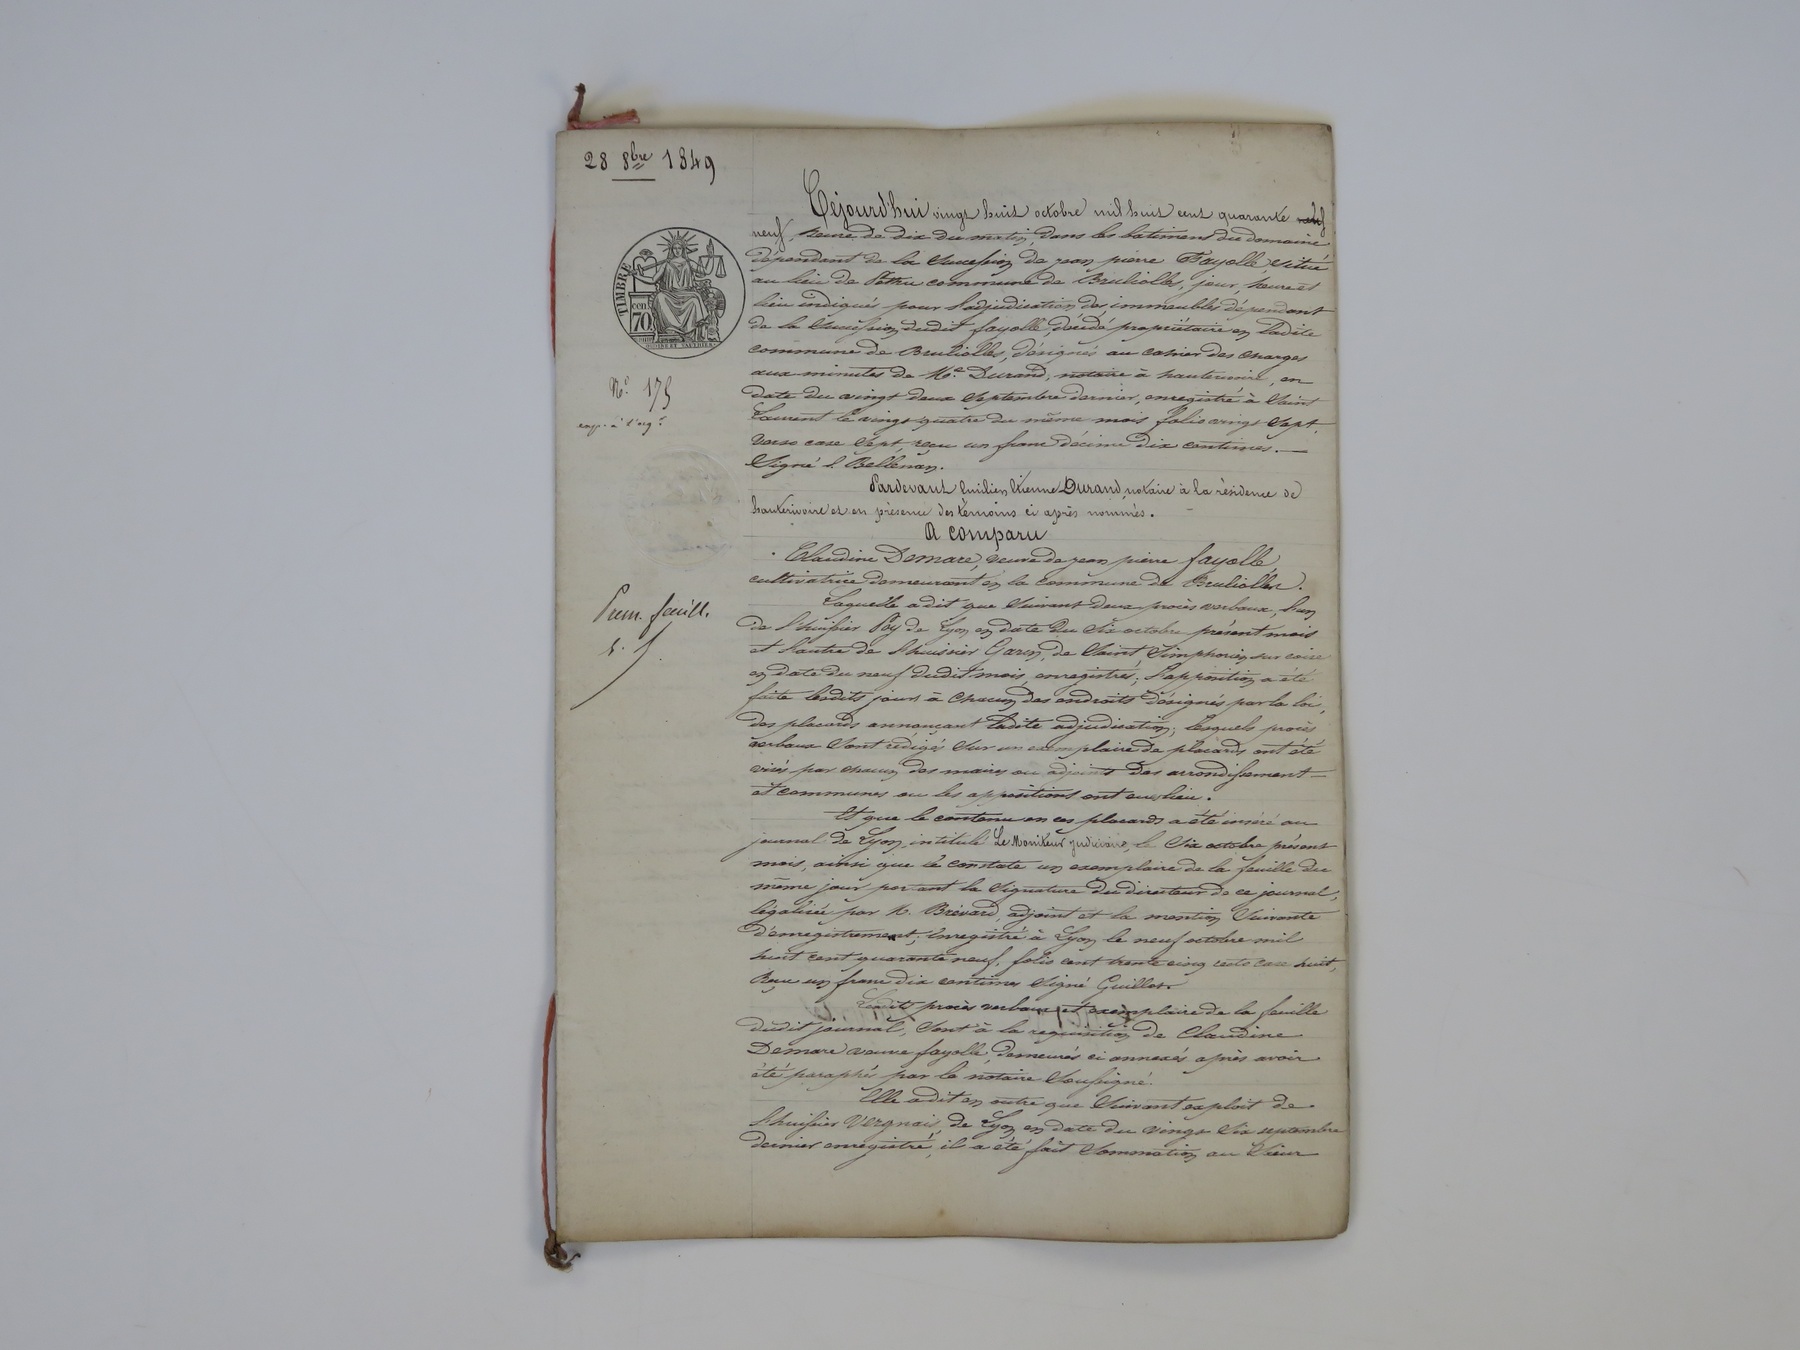 28 8bre 1849
TIMBRE
cen
70
N° 175
Prem. feuill.
Cejourd'hui vingt huit octobre mil huit cent quarante neuf
neuf, heure de dix du matin, dans les batiment du domaine
dépendant de la succession de jean pierre Fayolle situé
au lieu de commune de Brulliolles, jour, heure et
lieu indiqués pour l'adjudication des immeubles dépendant
de la succession dudit fayolle, décédé propriétaire en ladite
commune de Brulliolles, désignés au cahier des charges
aux minutes de Me Durand, notaire à hauterivoire, en
date du vingt deux septembre dernier, enregistré à Saint
Laurent le vingt quatre du même mois folio vingt sept,
verso case sept, reçu un franc décime dix centimes. —
Signé
Pardevant Emilien Etienne Durand, notaire à la résidence de
hauterivoire et en présence des témoins ci après nommés.
A comparu
Claudine Demare, veuve de jean pierre fayolle,
cultivatrice demeurant en la commune de Brulliolles.
Laquelle a dit que suivant deux procès verbaux, l'un
de l'huissier Poy de Lyon en date du six octobre présent mois
et l'autre de l'huissier Garin, de Saint Simphorien sur coise
en date du neuf dudit mois, enregistrés; l'apposition a été
faite lesdits jours à chacun des endroits désignés par la loi,
des placards annonçant ladite adjudication; lesquels procès
verbaux sont rédigés sur un exemplaire de placards ont été
visés par chacun des maires ou adjoints des arrondissement
et communes ou les appositions ont eu lieu.
Et que le contenu en ces placards a été inséré au
journal de Lyon, intitulé Le Moniteur judiciaire, le six octobre présent
mois, ainsi que le constate un exemplaire de la feuille du
même jour portant la signature du directeur de ce journal,
légalisée par M. Brévard, adjoint et la mention suivante
d'enregistrement; Enregistré à Lyon le neuf octobre mil
huit cent quarante neuf, folio cent trente cinq recto case huit,
Reçu un franc dix centimes signé Guillot.
Lesdits procès verbaux et exemplaire de la feuille
dudit journal, sont à la requisition de Claudine
Demare veuve fayolle, demeurés ci annexés après avoir
été paraphés par le notaire soussigné.
Elle a dit en outre que suivant exploit de
l'huissier Vergnais, de Lyon en date du vingt six septembre
dernier enregistré, il a été fait sommation au sieur